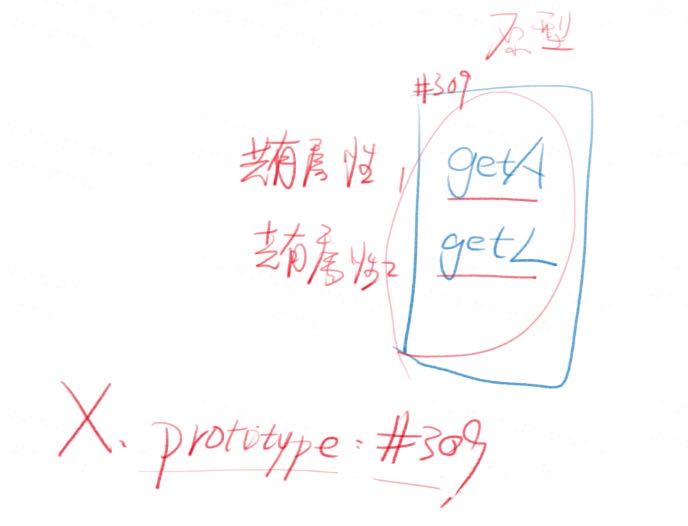 原型
#309
共有属性1 getA
共有属性2 getL
X. prototype: #309